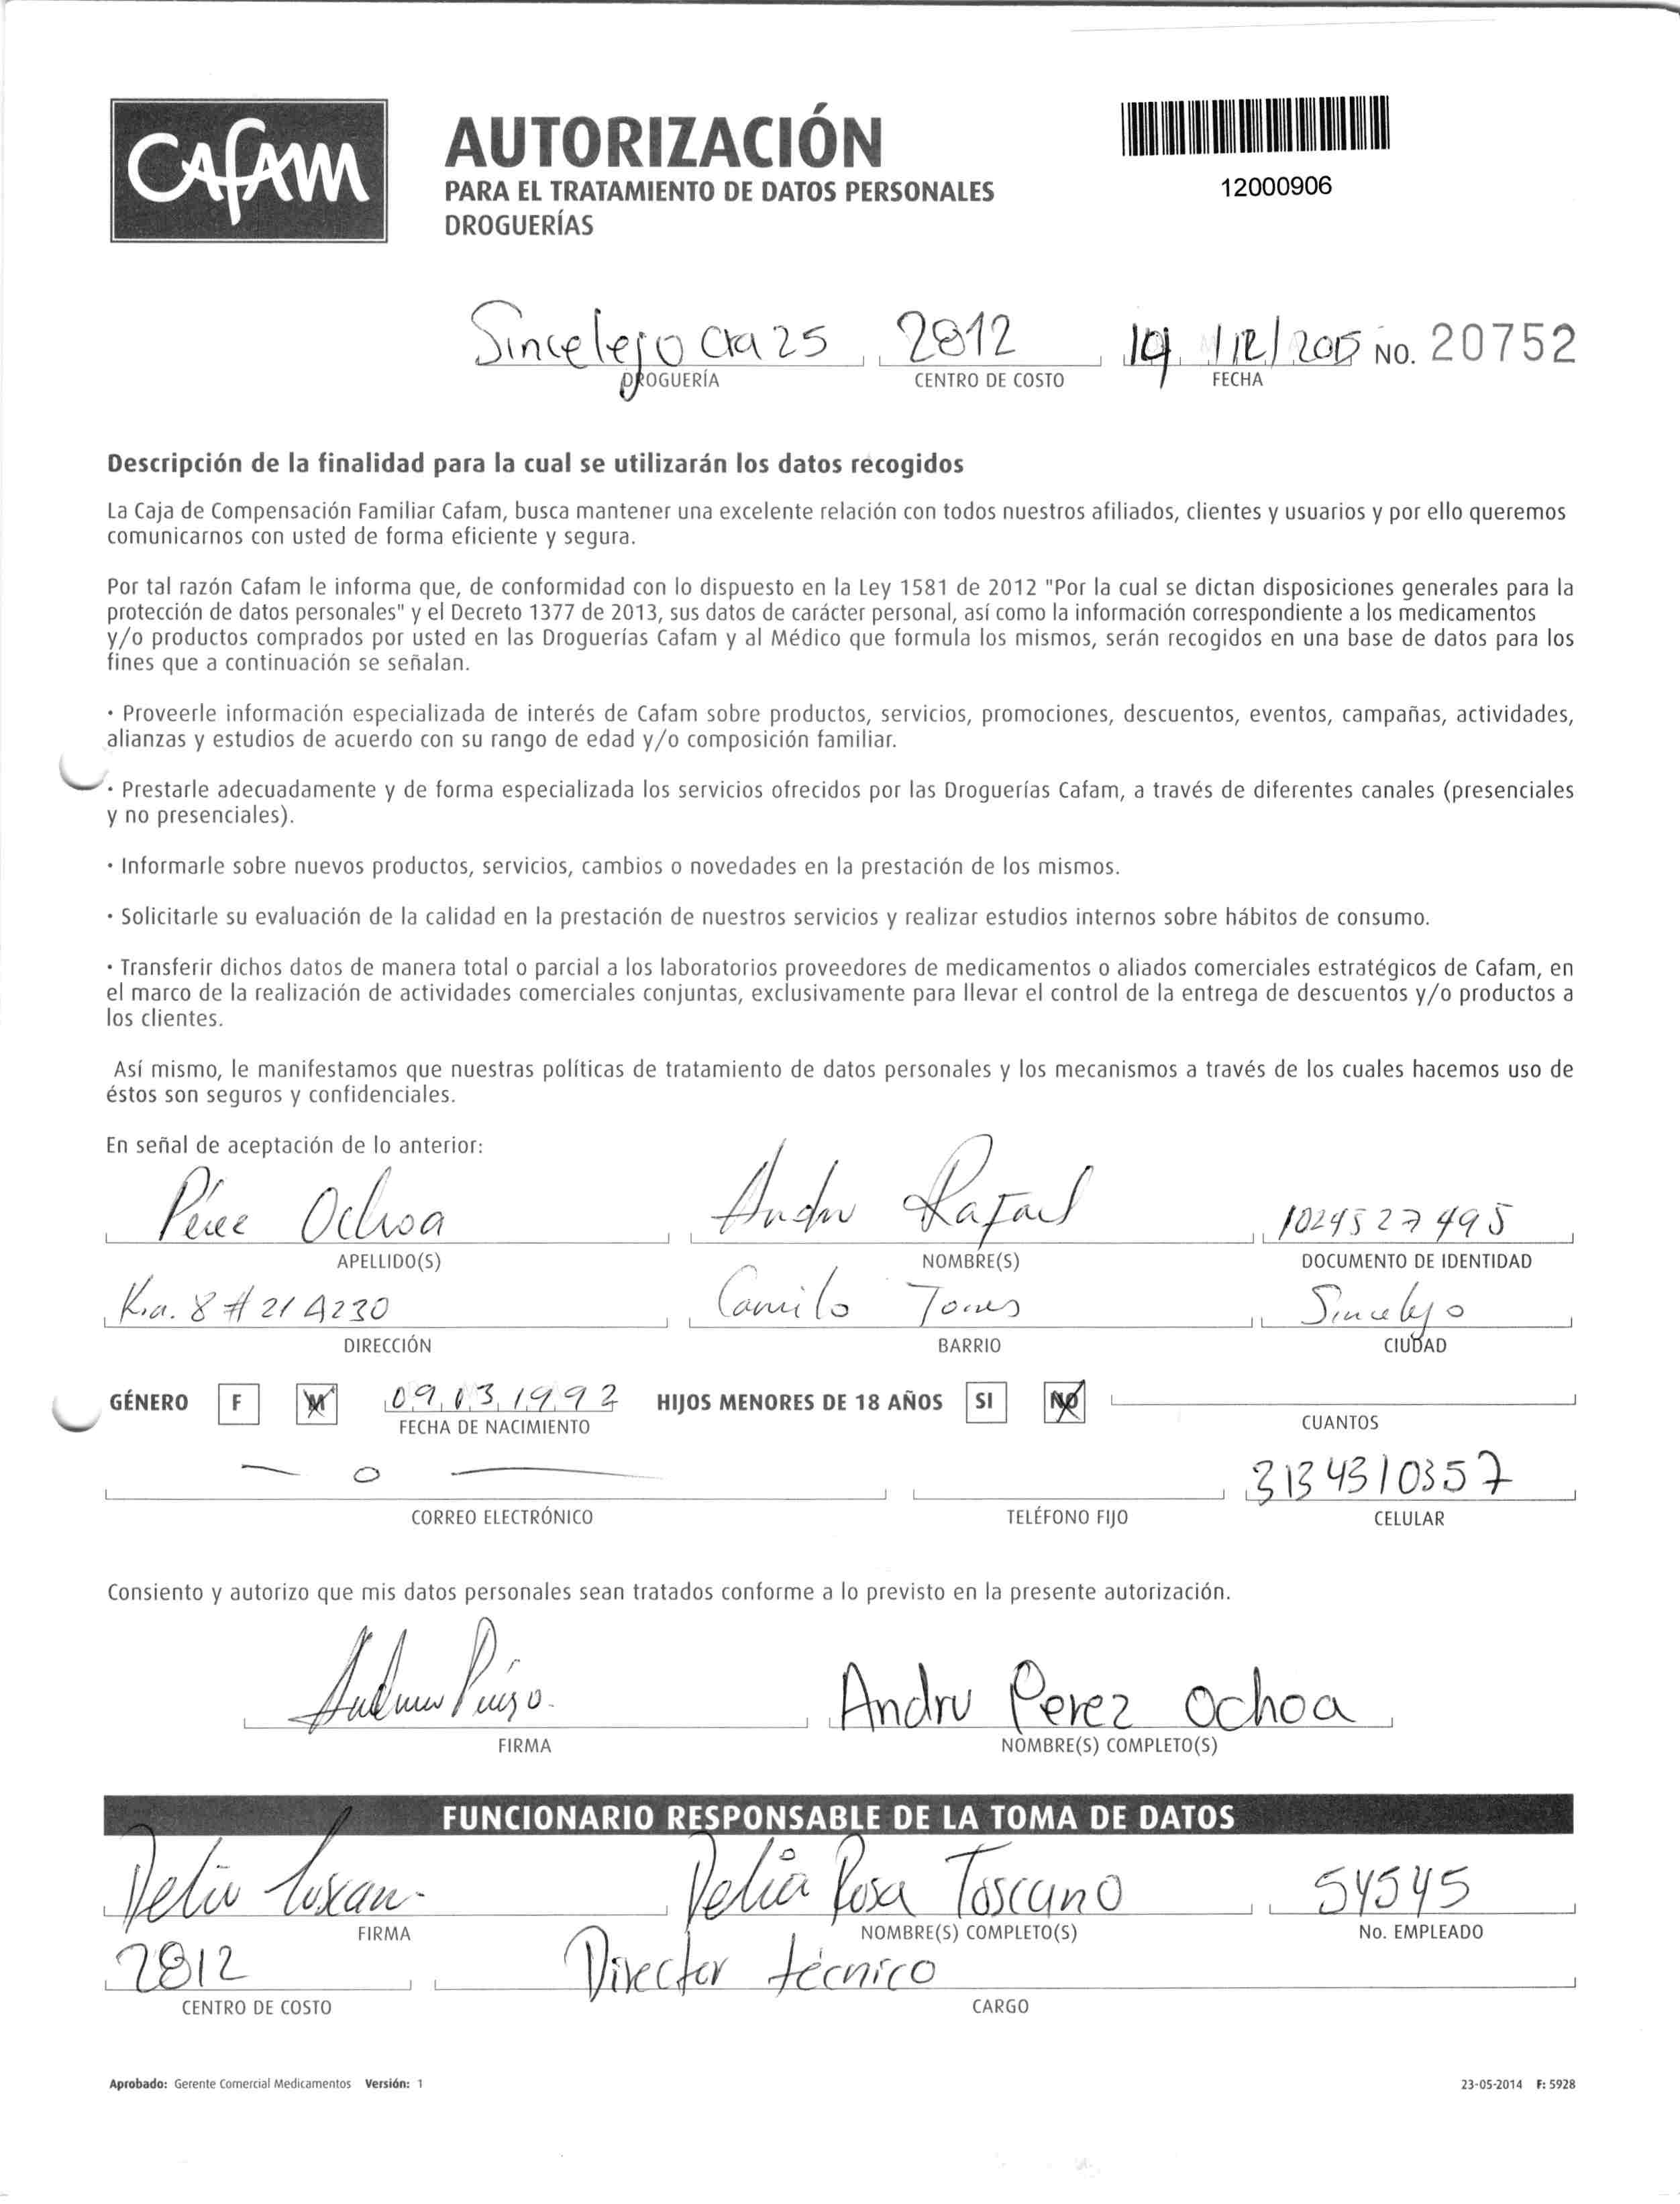 CAFAM
AUTORIZACIÓN
PARA EL TRATAMIENTO DE DATOS PERSONALES
DROGUERÍAS
12000906
Sincelejo Cra 25 2012 19/12/2015 NO. 20752
DROGUERÍA CENTRO DE COSTO FECHA
Descripción de la finalidad para la cual se utilizarán los datos recogidos
La Caja de Compensación Familiar Cafam, busca mantener una excelente relación con todos nuestros afiliados, clientes y usuarios y por ello queremos
comunicarnos con usted de forma eficiente y segura.
Por tal razón Cafam le informa que, de conformidad con lo dispuesto en la Ley 1581 de 2012 "Por la cual se dictan disposiciones generales para la
protección de datos personales" y el Decreto 1377 de 2013, sus datos de carácter personal, así como la información correspondiente a los medicamentos
y/o productos comprados por usted en las Droguerías Cafam y al Médico que formula los mismos, serán recogidos en una base de datos para los
fines que a continuación se señalan.
· Proveerle información especializada de interés de Cafam sobre productos, servicios, promociones, descuentos, eventos, campañas, actividades,
alianzas y estudios de acuerdo con su rango de edad y/o composición familiar.
· Prestarle adecuadamente y de forma especializada los servicios ofrecidos por las Droguerías Cafam, a través de diferentes canales (presenciales
y no presenciales).
· Informarle sobre nuevos productos, servicios, cambios o novedades en la prestación de los mismos.
· Solicitarle su evaluación de la calidad en la prestación de nuestros servicios y realizar estudios internos sobre hábitos de consumo.
· Transferir dichos datos de manera total o parcial a los laboratorios proveedores de medicamentos o aliados comerciales estratégicos de Cafam, en
el marco de la realización de actividades comerciales conjuntas, exclusivamente para llevar el control de la entrega de descuentos y/o productos a
los clientes.
Así mismo, le manifestamos que nuestras políticas de tratamiento de datos personales y los mecanismos a través de los cuales hacemos uso de
éstos son seguros y confidenciales.
En señal de aceptación de lo anterior:
Pérez Ochoa Andru Rafael 1024527495
APELLIDO(S) NOMBRE(S) DOCUMENTO DE IDENTIDAD
Kra. 8 # 21 A230 Camilo Torres Sincelejo
DIRECCIÓN BARRIO CIUDAD
GÉNERO F M 09 03 1992 HIJOS MENORES DE 18 AÑOS SI NO
FECHA DE NACIMIENTO CUANTOS
— o — 3134310357
CORREO ELECTRÓNICO TELÉFONO FIJO CELULAR
Consiento y autorizo que mis datos personales sean tratados conforme a lo previsto en la presente autorización.
Andru Perez Ochoa
FIRMA NOMBRE(S) COMPLETO(S)
FUNCIONARIO RESPONSABLE DE LA TOMA DE DATOS
Delia Toscan Delia Rosa Toscano 54545
FIRMA NOMBRE(S) COMPLETO(S) No. EMPLEADO
2012 Director técnico
CENTRO DE COSTO CARGO
Aprobado: Gerente Comercial Medicamentos Versión: 1 23-05-2014 F: 5928